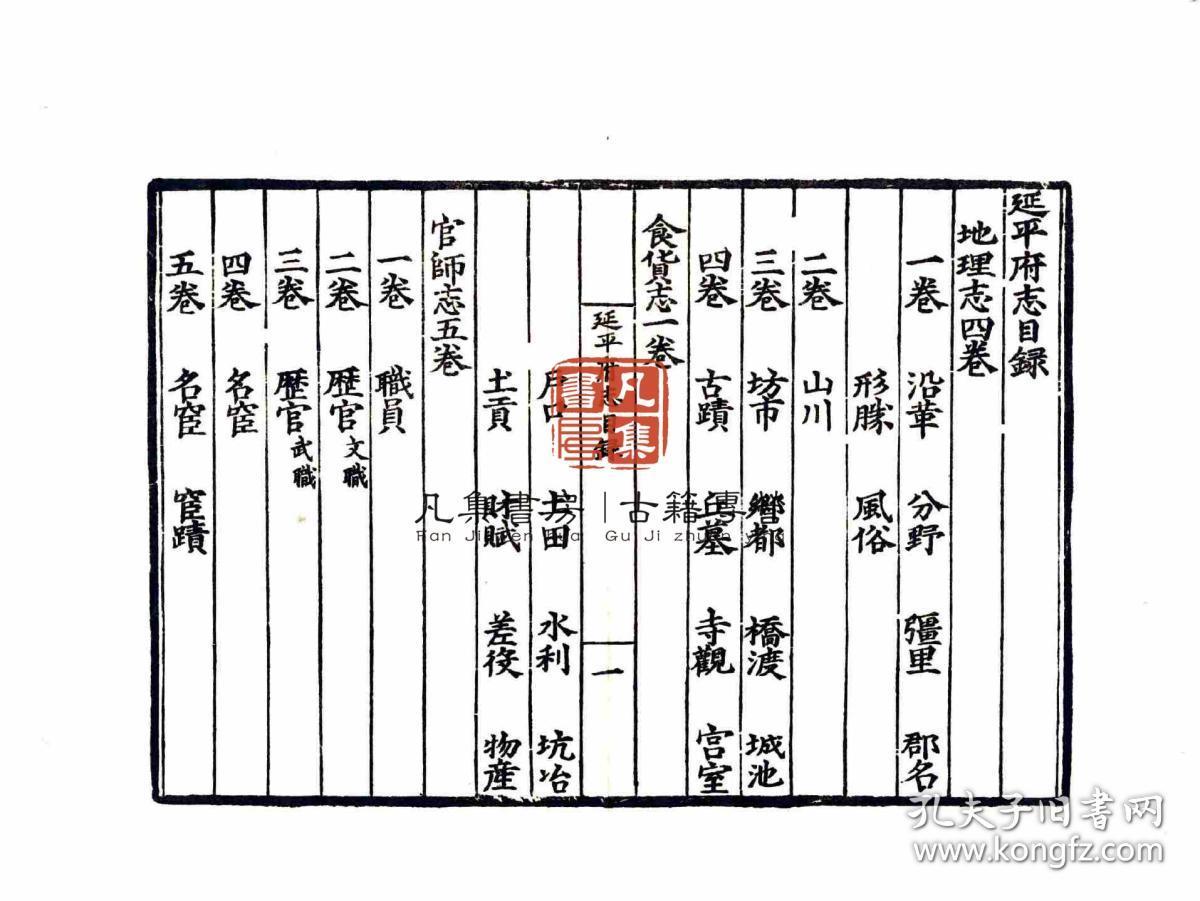 延平府志目録
地理志四卷
一卷 沿革 分野 彊里 郡名
形勝 風俗
二卷 山川
三卷 坊市 鄉都 橋渡 城池
四卷 古蹟 丘墓 寺觀 宫室
食貨志一卷
户口 土田 水利 坑冶
延平府志目録 一
土貢 財賦 差役 物産
官師志五卷
一卷 職員
二卷 歴官文職
三卷 歴官武職
四卷 名宦
五卷 名宦 宦蹟
凡集書房
凡集書房|古籍傳
Fan Ji Gu Ji
孔夫子旧书网
www.kongfz.com